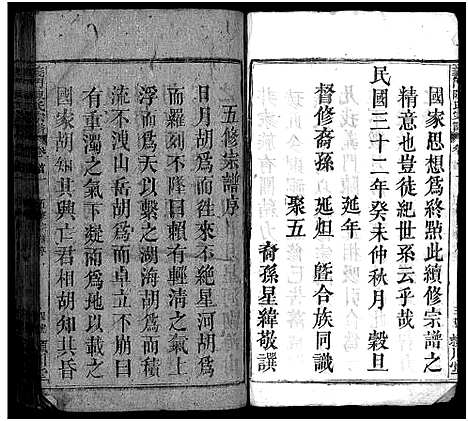 國家思想爲終點此續修宗譜之
精意也豈徒紀世系云乎哉
民國三十二年癸未仲秋月 穀旦
延年
督修裔孫 延烜 曁合族同識
聚五
裔孫星緯敬譔
五修宗譜序
日月胡爲而徃來不絶星河胡爲
而羅刻不隆曰賴有輕清之氣上
浮而爲天以繫之湖海胡爲而長
流不洩山岳胡爲而卓立不崩曰
有重濁之氣下凝而爲地以載之
國家胡爲其興亡君相胡知其昏